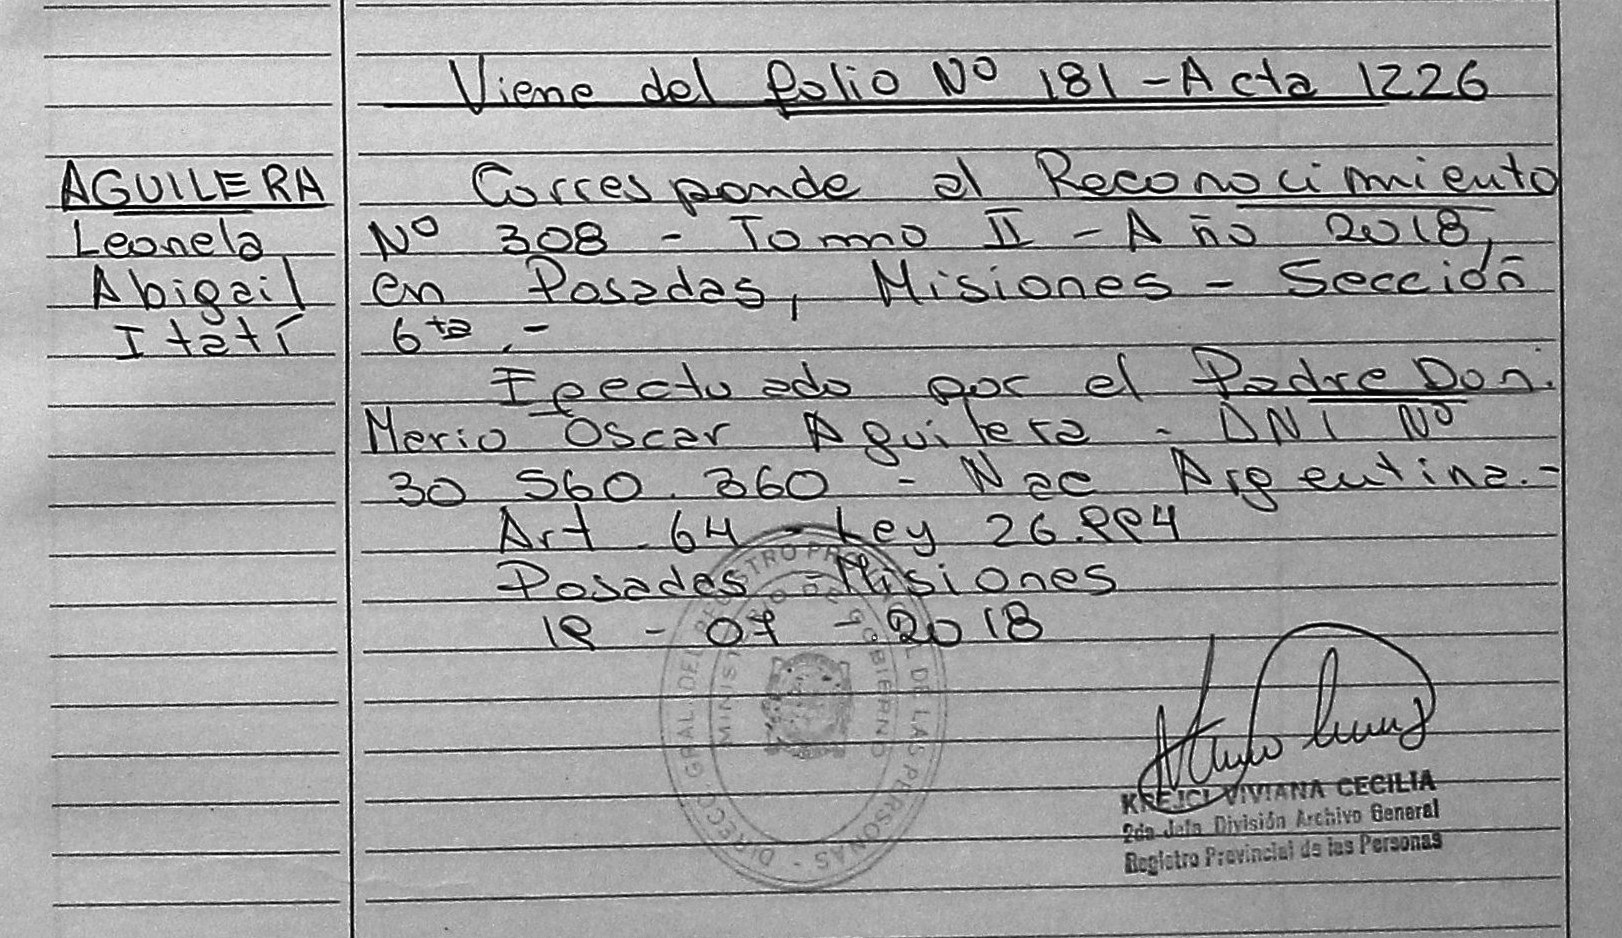 Viene del folio Nº 181 - Acta 1226
AGUILERA
Leonela
Abigail
Itatí
Corresponde al Reconocimiento
Nº 308 - Tomo II - Año 2018,
en Posadas, Misiones - Sección
6ta.-
Efectuado por el Padre Don:
Mario Oscar Aguilera - DNI Nº
30 560.360 - Nac Argentina.-
Art. 64 - Ley 26.994
Posadas - Misiones
19 - 07 - 2018
DIRECC. GRAL. DEL REGISTRO PROVINCIAL DE LAS PERSONAS -
MINISTERIO DE GOBIERNO
KREJCI VIVIANA CECILIA
2da Jefa División Archivo General
Registro Provincial de las Personas